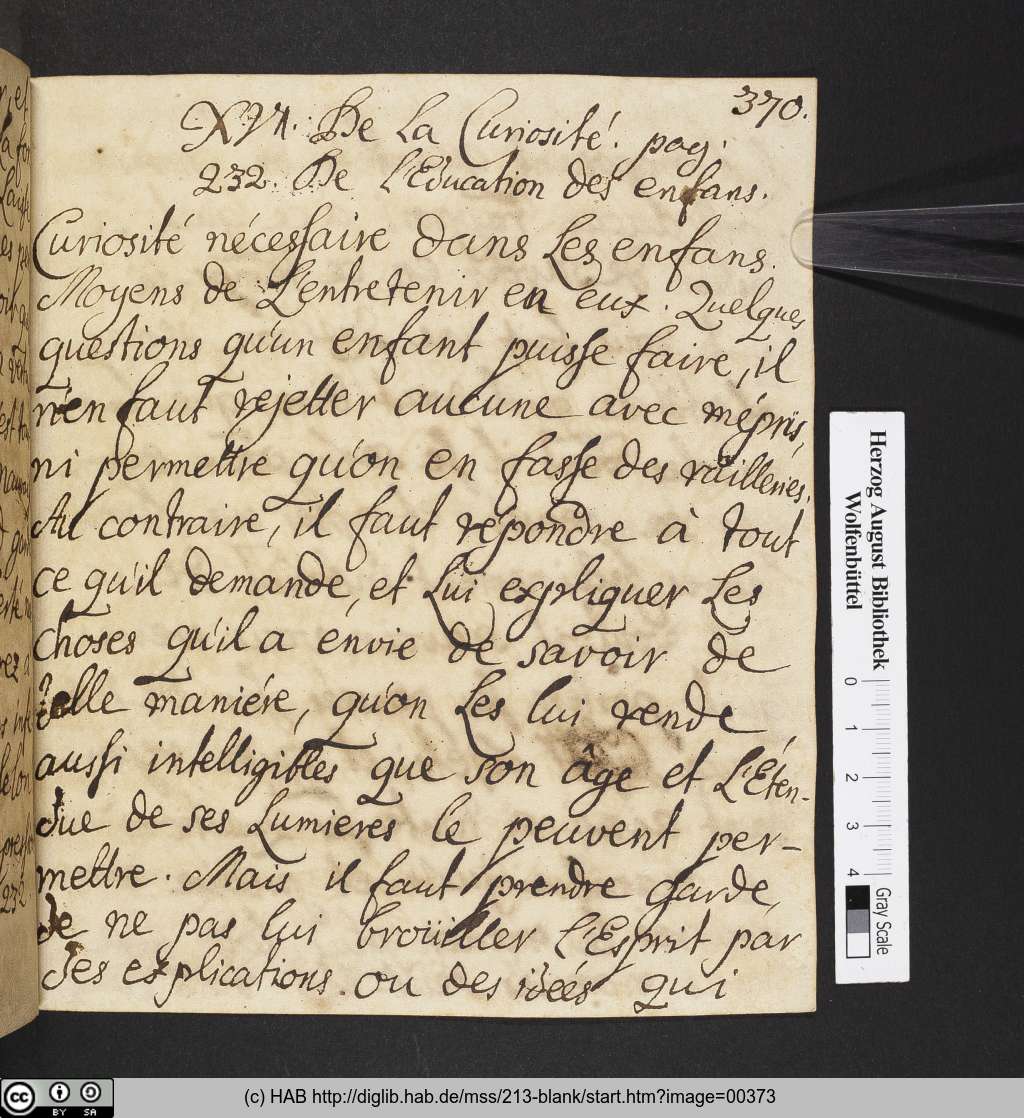 370.
XVI. De La Curiosité. pag.
232. De L'Education des enfans.
Curiosité nécessaire dans Les enfans.
Moyens de L'entretenir en eux. Quelques
questions qu'un enfant puisse faire, il
n'en faut rejetter aucune avec mépris,
ni permettre qu'on en fasse des railleries.
Au contraire, il faut répondre à tout
ce qu'il demande, et Lui expliquer Les
choses qu'il a envie de savoir de
telle maniére, qu'on Les lui rende
aussi intelligibles que son âge et L'Éten-
due de ses Lumieres le peuvent per-
mettre. Mais il faut prendre garde,
de ne pas lui broüiller L'Esprit par
des explications. ou des idées qui
Herzog August Bibliothek
Wolfenbüttel
0 1 2 3 4
Gray Scale
cc BY SA
(c) HAB http://diglib.hab.de/mss/213-blank/start.htm?image=00373